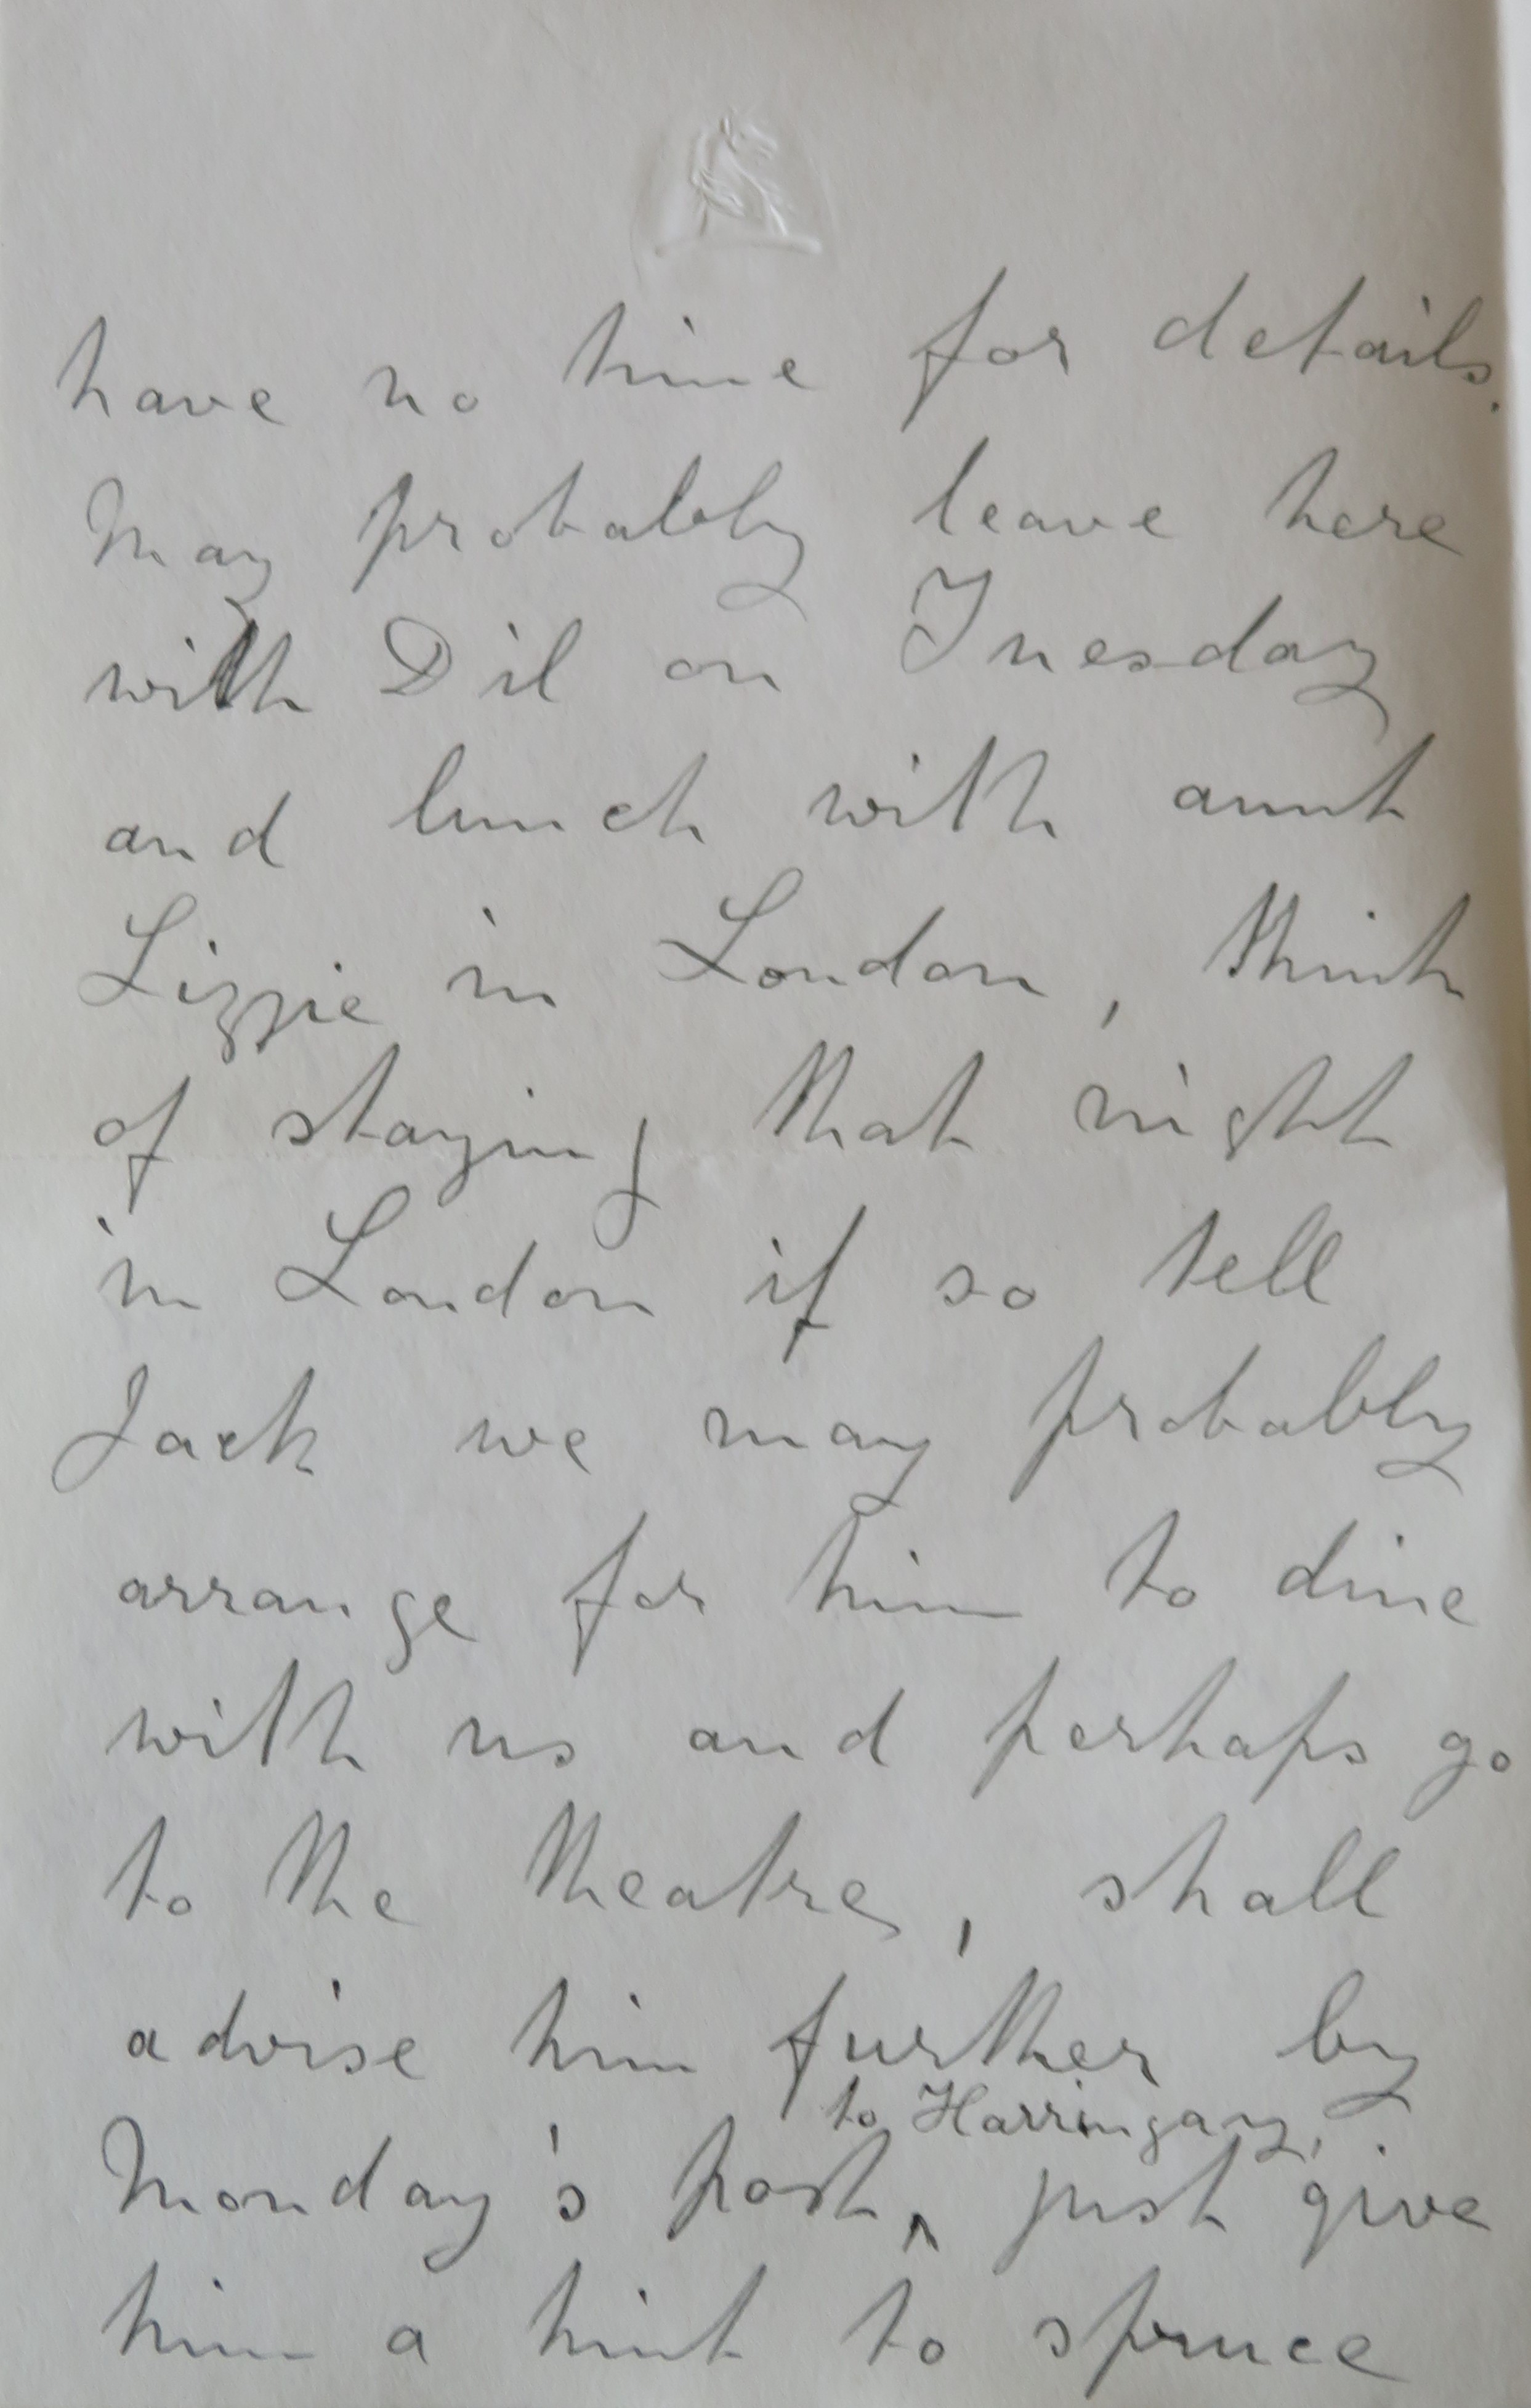 have no time for details.
May probably leave here
with Dil on Tuesday
and lunch with aunt
Lizzie in London, think
of staying that night
in London if so tell
Jack we may probably
arrange for him to dine
with us and perhaps go
to the theatre, shall
advise him further by
to Harringay,
Monday's post, ^ just give
him a hint to spruce